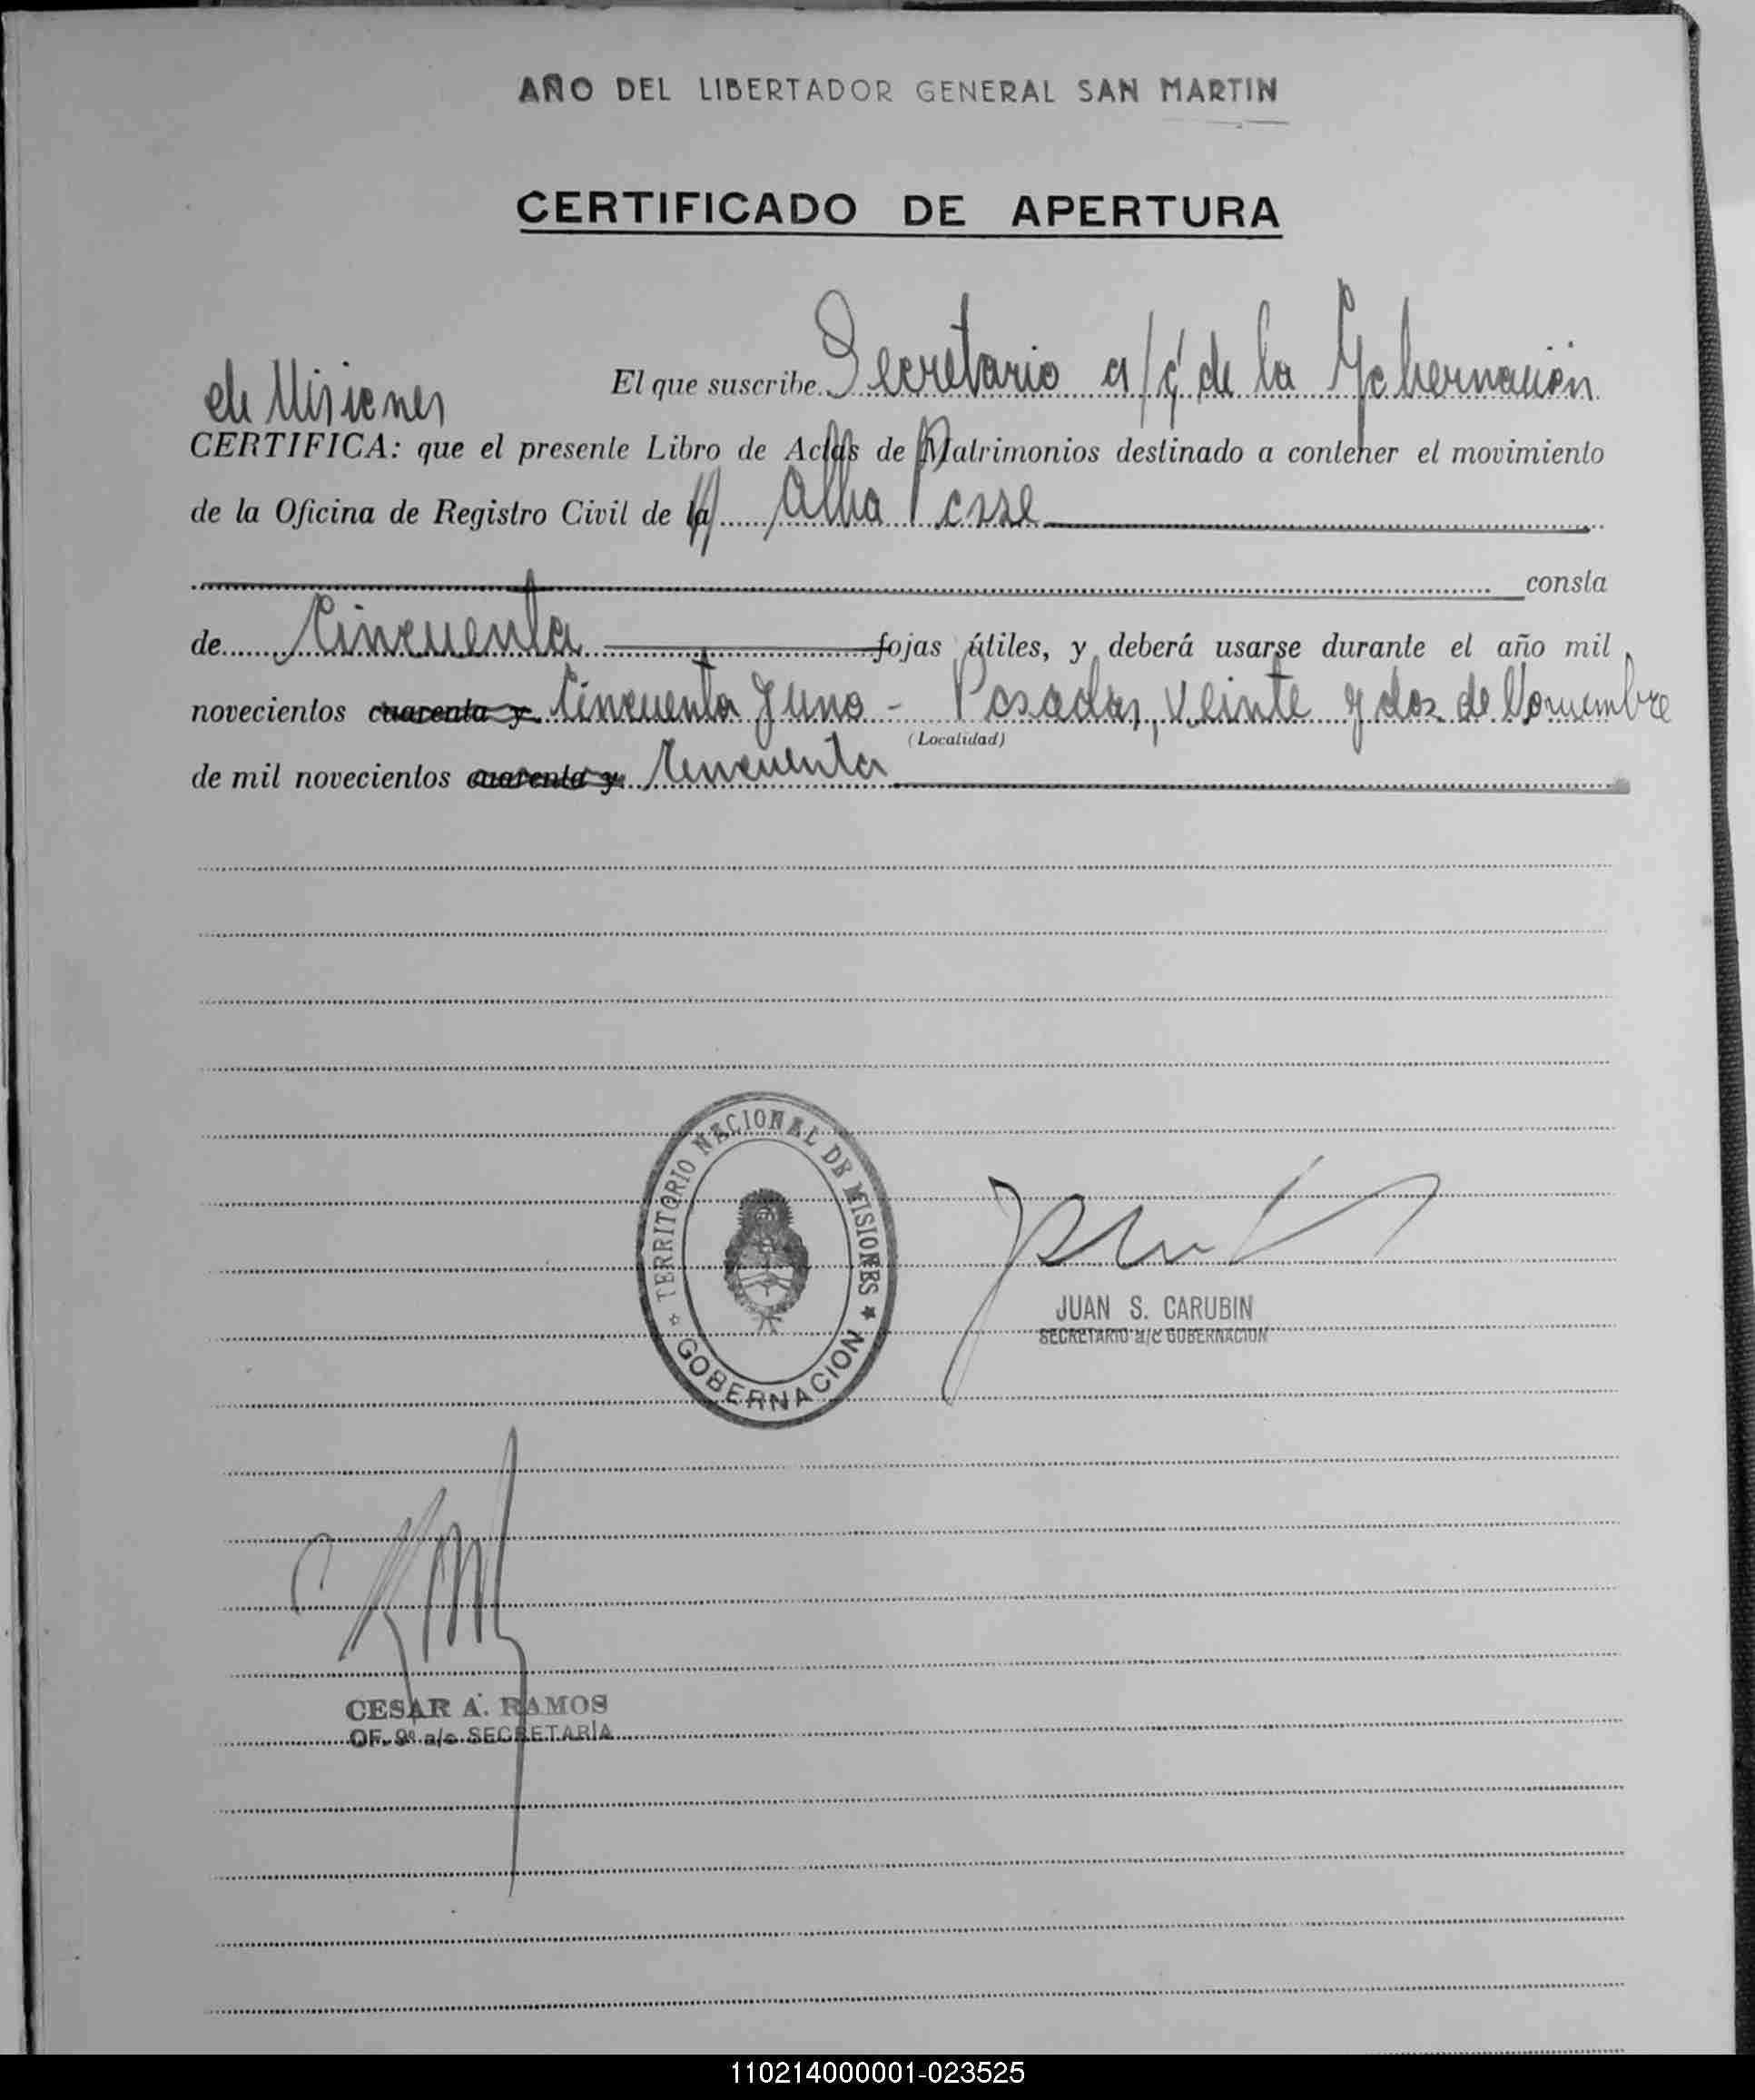 AÑO DEL LIBERTADOR GENERAL SAN MARTIN
CERTIFICADO DE APERTURA
El que suscribe Secretario a/c de la Gobernación
de Misiones
CERTIFICA: que el presente Libro de Actas de Matrimonios destinado a contener el movimiento
de la Oficina de Registro Civil de la Alba Posse
consta
de Cincuenta fojas útiles, y deberá usarse durante el año mil
novecientos cuarenta y Cincuenta y uno - Posadas, veinte y dos de Noviembre
(Localidad)
de mil novecientos cuarenta y Cincuenta
TERRITORIO NACIONAL DE MISIONES
GOBERNACION
JUAN S. CARUBIN
SECRETARIO a/c GOBERNACION
CESAR A. RAMOS
OF. 9º a/c SECRETARÍA
110214000001-023525